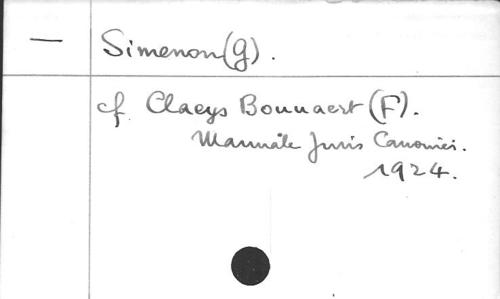 — Simenon (G).
cf. Claeys Bouuaert (F).
Manuale Juris Canonici.
1924.